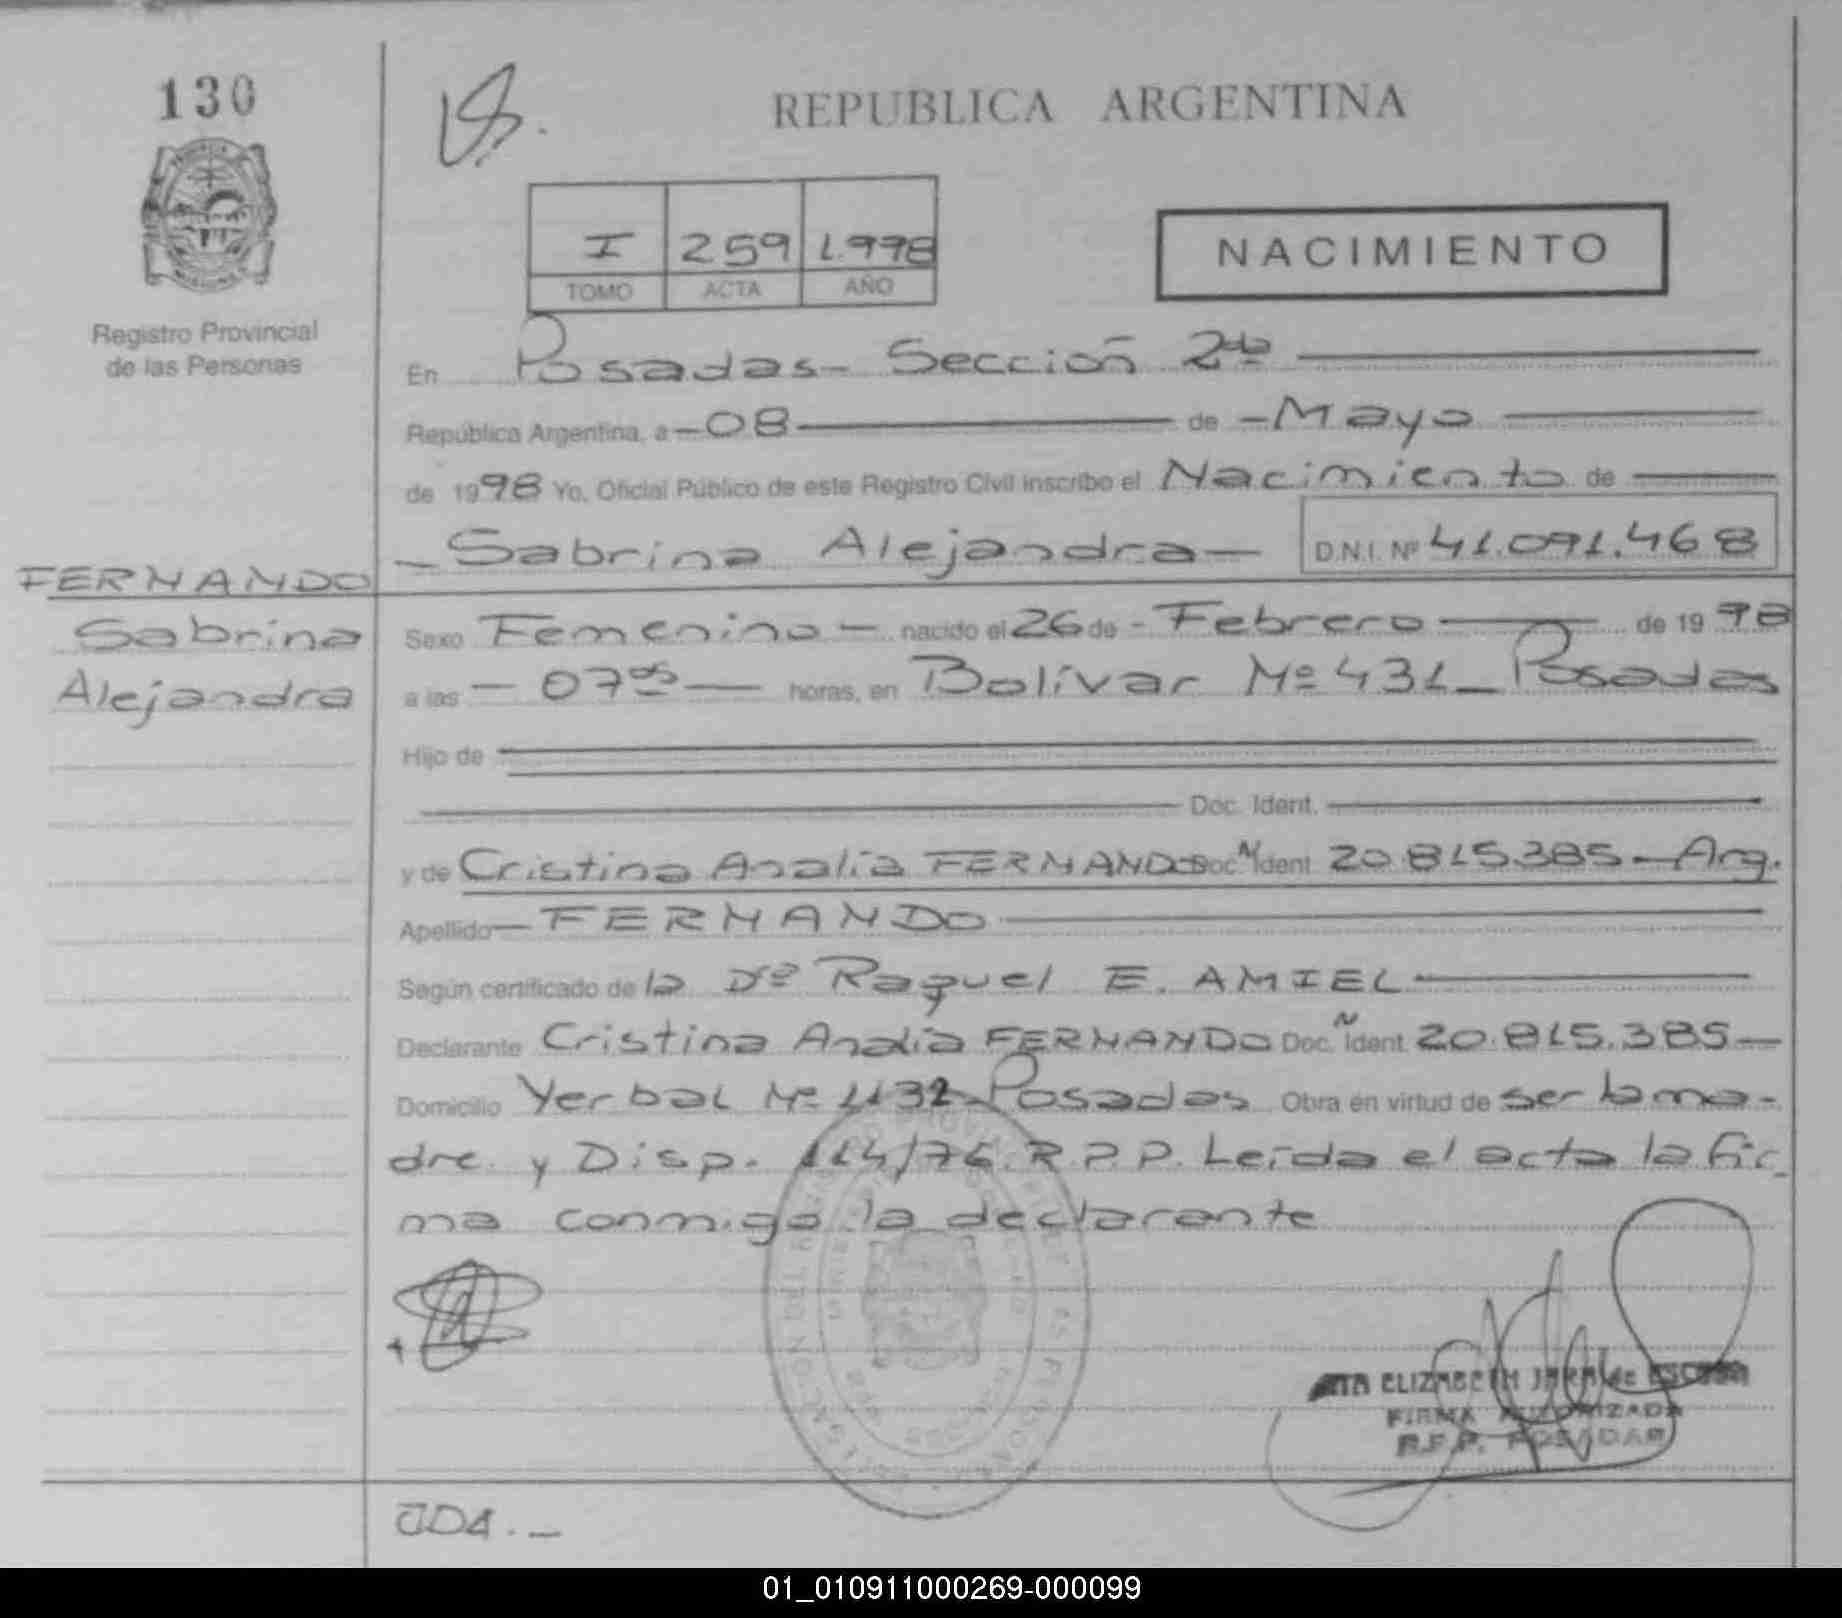 130
REPUBLICA ARGENTINA
I 259 1.998
TOMO ACTA AÑO
NACIMIENTO
Registro Provincial
de las Personas
En Posadas - Sección 2da
República Argentina, a - 08 de - Mayo
de 1998 Yo, Oficial Público de este Registro Civil inscribo el Nacimiento de
- Sabrina Alejandra - D.N.I. Nº 41.091.468
FERNANDO
Sabrina
Alejandra
Sexo Femenino - nacido el 26 de - Febrero de 19 98
a las - 07 05 - horas, en Bolívar Nº 431 - Posadas
Hijo de
Doc. Ident.
y de Cristina Analía FERNANDO Doc. N Ident 20.815.385 - Arg.
Apellido - FERNANDO
Según certificado de la Dª Raquel E. AMIEL
Declarante Cristina Analía FERNANDO Doc. N Ident 20.815.385 -
Domicilio Yerbal Nº 1132 - Posadas Obra en virtud de ser la ma-
dre y Disp. 114/76. R.P.P. Leída el acta la fir-
ma conmigo la declarante
ELIZABETH JARA de
FIRMA AUTORIZADA
R.P.P. POSADAS
JDA. -
01_010911000269-000099